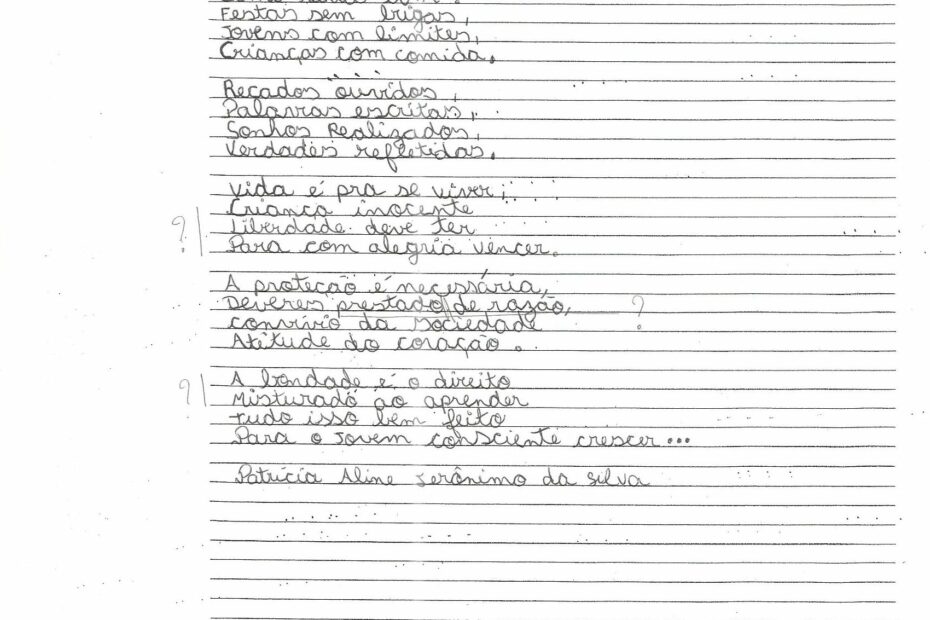 Festas sem brigas,
Jovens com limites,
Crianças com comida.
Recados ouvidos,
Palavras escritas,
Sonhos Realizados,
Verdades refletidas.
Vida é pra se viver;
Criança inocente
?
Liberdade deve ter
Para com alegria vencer.
A proteção é necessária,
Deveres prestado de razão,
?
convívio da sociedade
Atitude do coração.
A bondade é o direito
?
Misturado ao aprender
tudo isso bem feito
Para o jovem consciente crescer...
Patrícia Aline Jerônimo da silva